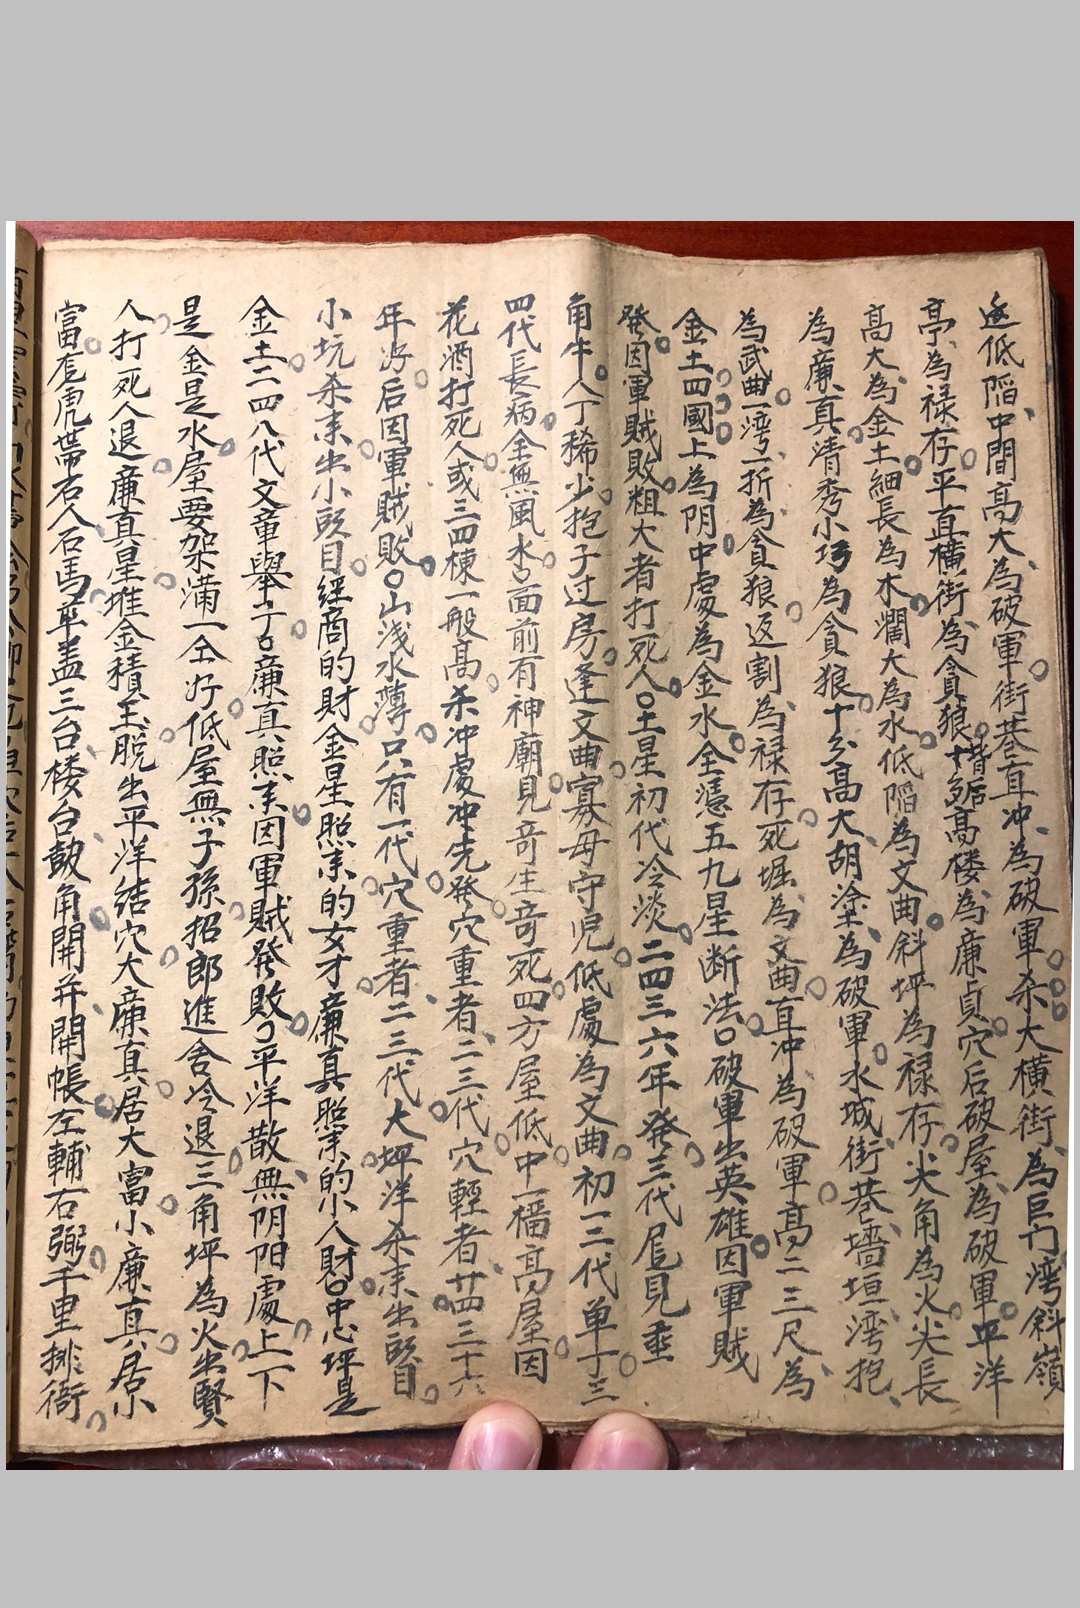 低陷中間高大為破軍街巷直冲為破軍杀大横街為巨门湾斜嶺
亭為禄存平直横街為貪狼十分高楼為廉貞穴后破屋為破軍平洋
高大為金土細長為木濶大為水低陷為文曲斜坪為禄存尖角為火尖長
為廉真清秀小巧為貪狼十分高大胡塗為破軍水城街巷墙垣湾抱
為武曲一湾一折為貪狼返割為禄存死堀為文曲直冲為破軍高二三尺為
金土四國上為阴中處為金水全憑五九星断法破軍出英雄因軍賊
發因軍賊敗粗大者打死人土星初代冷淡二四三六年発三代尾見重
角牛人丁稀少抱子过房逢文曲寡母守児低處為文曲初一二代单丁三
四代長病全無風水面前有神廟見竒生竒死四方屋低中一福高屋因
花酒打死人或三四棟一般高杀冲處冲先發穴重者二三代穴輕者廿四三十六
年好后因軍賊敗山浅水薄只有一代穴重者二三代大坪洋杀耒出頭目
小坑杀耒出小頭目經商的財金星照耒的女才廉真照耒的小人財中忌坪是
金土二四八代文章舉子廉真照耒因軍賊發敗平洋散無阴阳處上下
是金是水屋要架满一仝好低屋無子孫招郎進舍冷退三角坪為火出賢
人打死人退廉真星堆金積玉脱出平洋结穴大廉真居大富小廉真居小
富庭虎带石人石馬傘盖三台楼台皷角開并開帳左輔右弼千里排衙